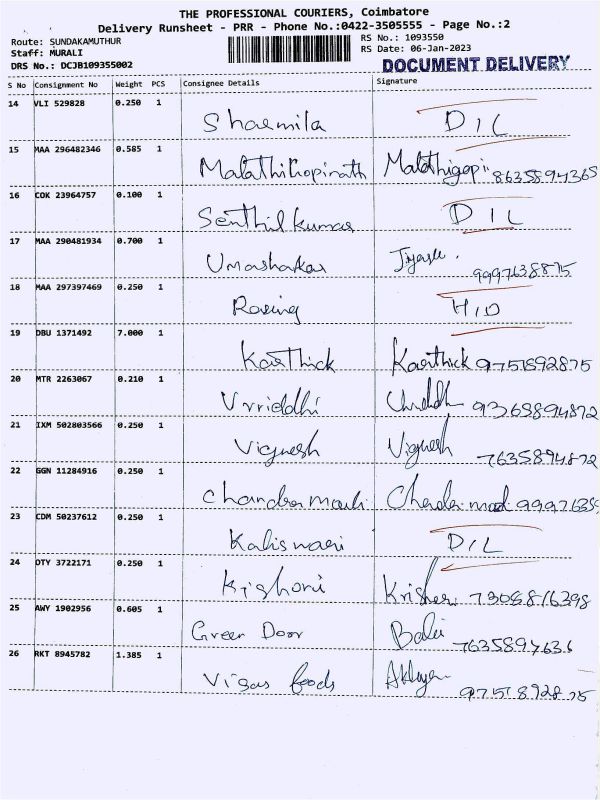 THE PROFESSIONAL COURIERS, Coimbatore
Delivery Runsheet - PRR - Phone No.:0422-3505555 - Page No.:2
Route: SUNDAKAMUTHUR
Staff: MURALI
DRS No.: DCJB109355002
RS No.: 1093550
RS Date: 06-Jan-2023
DOCUMENT DELIVERY
S No Consignment No Weight PCS Consignee Details Signature
14 VLI 529828 0.250 1 Sharmila D I L
15 MAA 296482346 0.585 1 Malathigopinath Malathigopi 8635594365
16 COK 23964757 0.100 1 Senthil kumar D I L
17 MAA 290481934 0.700 1 Umashakar 9997638875
18 MAA 297397469 0.250 1 H I D
19 DBU 1371492 7.000 1 Karthick Karthick 9751892875
20 MTR 2263067 0.210 1 Vrriddhi 9365894872
21 IXM 502803566 0.250 1 Vignesh Vignesh 7635894872
22 GGN 11284916 0.250 1 Chandramouli 99976355
23 CDM 50237612 0.250 1 Kaliswari D I L
24 OTY 3722171 0.250 1 Kishori
25 AWY 1902956 0.605 1 Green Door 7635894636
26 RKT 8945782 1.385 1 Vigas foods 9751892875